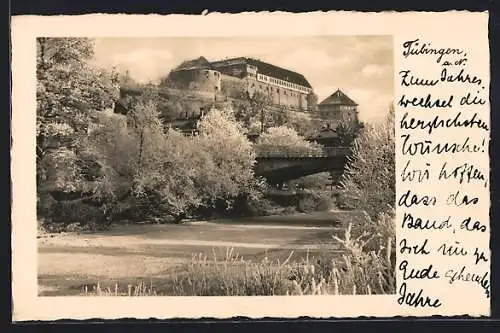 Tübingen,
a.N.
Zum Jahres
wechsel die
herzlichsten
Wünsche!
Wir hoffen,
dass das
Band, das
sich im zu
Ende gehenden
Jahre